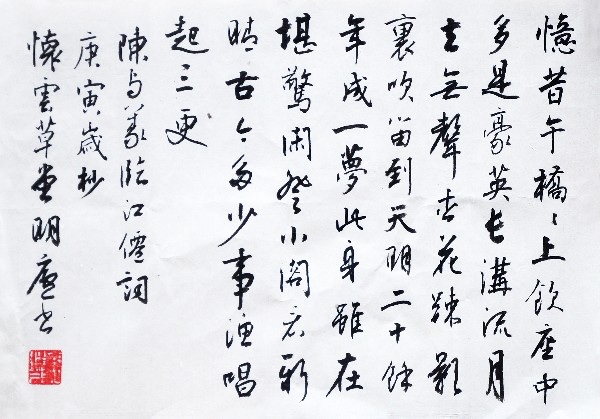 憶昔午橋〻上飲座中
多是豪英長溝流月
去無聲杏花疎影
裏吹笛到天明二十餘
年成一夢此身雖在
堪驚閑登小閣看新
晴古今多少事漁唱
起三更
陳与義臨江僊詞
庚寅歲杪
懷雲草堂明廬书